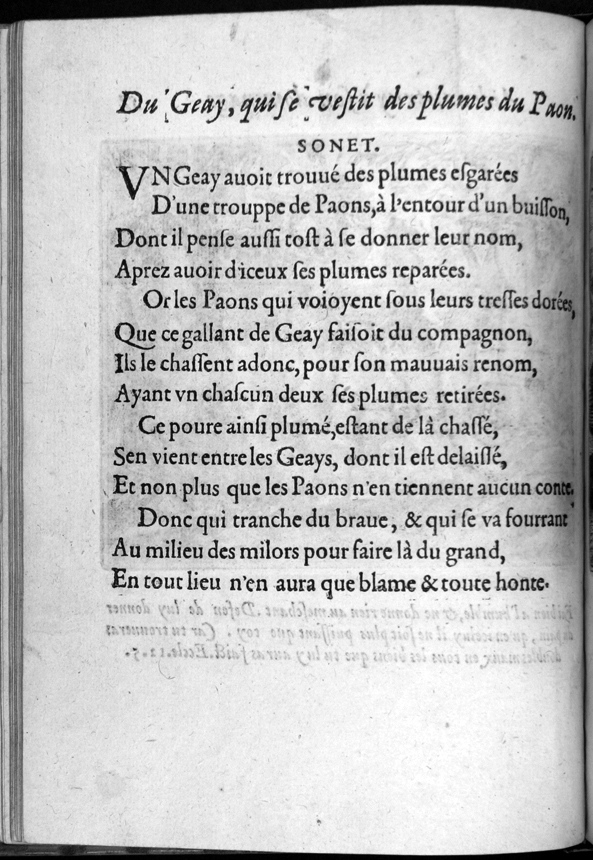 Du Geay, qui ſe veſtit des plumes du Paon.
SONET.
VN Geay auoit trouué des plumes eſgarées
D'une trouppe de Paons, à l'entour d'un buiſſon,
Dont il penſe auſſi toſt à ſe donner leur nom,
Aprez auoir d'iceux ſes plumes reparées.
Or les Paons qui voioyent ſous leurs treſſes dorées,
Que ce gallant de Geay faiſoit du compagnon,
Ils le chaſſent adonc, pour ſon mauuais renom,
Ayant vn chaſcun deux ſes plumes retirées.
Ce poure ainſi plumé, eſtant de là chaſſé,
Sen vient entre les Geays, dont il eſt delaiſſé,
Et non plus que les Paons n'en tiennent aucun conte.
Donc qui tranche du braue, & qui ſe va fourrant
Au milieu des milors pour faire là du grand,
En tout lieu n'en aura que blame & toute honte.